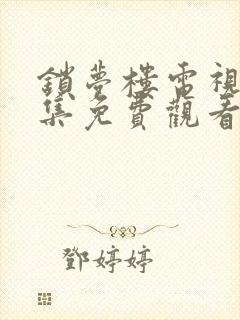 鎖夢樓電視
集免費觀看
鄧婷婷